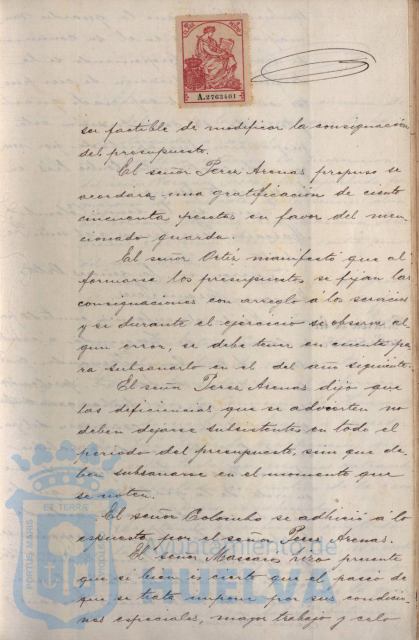 A.2763401
ser factible de modificar la consignación
del presupuesto.
El señor Perez Arenas propuso se
acordára una gratificación de ciento
cincuenta pesetas en favor del men-
cionado guarda.
El señor Ortiz manifestó que al
formarse los presupuestos se fijan las
consignaciones con arreglo á los servicios
y si durante el ejercicio se observa al
gun error, se debe tener en cuenta pa
ra subsanarlo en el del año siguiente.
El señor Perez Arenas dijo que
las deficiencias que se advierten no
deben dejarse subsistentes en todo el
periodo del presupuesto, sino que de-
ben subsanarse en el momento que
se noten.
El señor Colombo se adhirió á lo
expuesto por el señor Perez Arenas.
El señor hizo presente
que si bien es cierto que el paseo de
que se trata impone por sus condicio
nes especiales, mayor trabajo y celo
PORTUS MARIS
ET TERRÆ
Ayuntamiento de
HUELVA